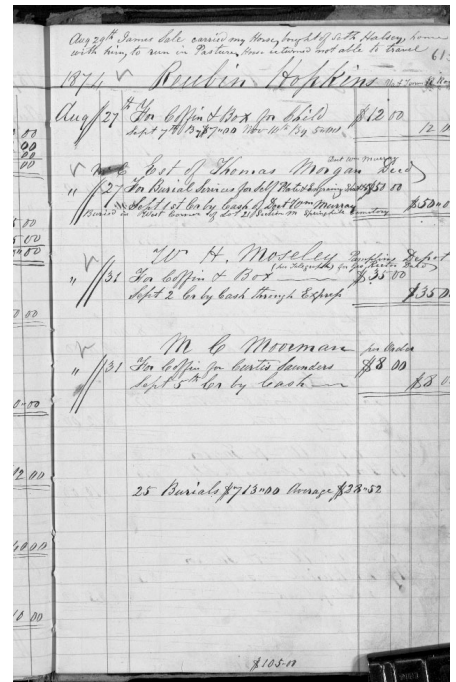 Aug 29th James Sale carried my Horse, bought of Seth Halsey, home
with him, to run in Pasture, Horse returned not able to travel
61
1874 Reubin Hopkins
Aug 27th For Coffin & Box for Child $12 00
Sept 7th By $7"00 Nov 14th By 5"00 12 0
Est of Thomas Morgan Decd
" 27 For Burial Services for Self $50 00
Sept 1st Cr by Cash of Wm Murray $50"00
Buried in West Corner of Lot 21 Section M Cemetery
W. H. Moseley Pamplins Depot
" 31 For Coffin & Box $35 00
Sept 2 Cr by Cash through Express $35 0
M C Moorman per Order
" 31 For Coffin for Curtis Saunders $8 00
Sept 5th Cr by Cash $8 0
25 Burials $713"00 Average $28"52
$105-00